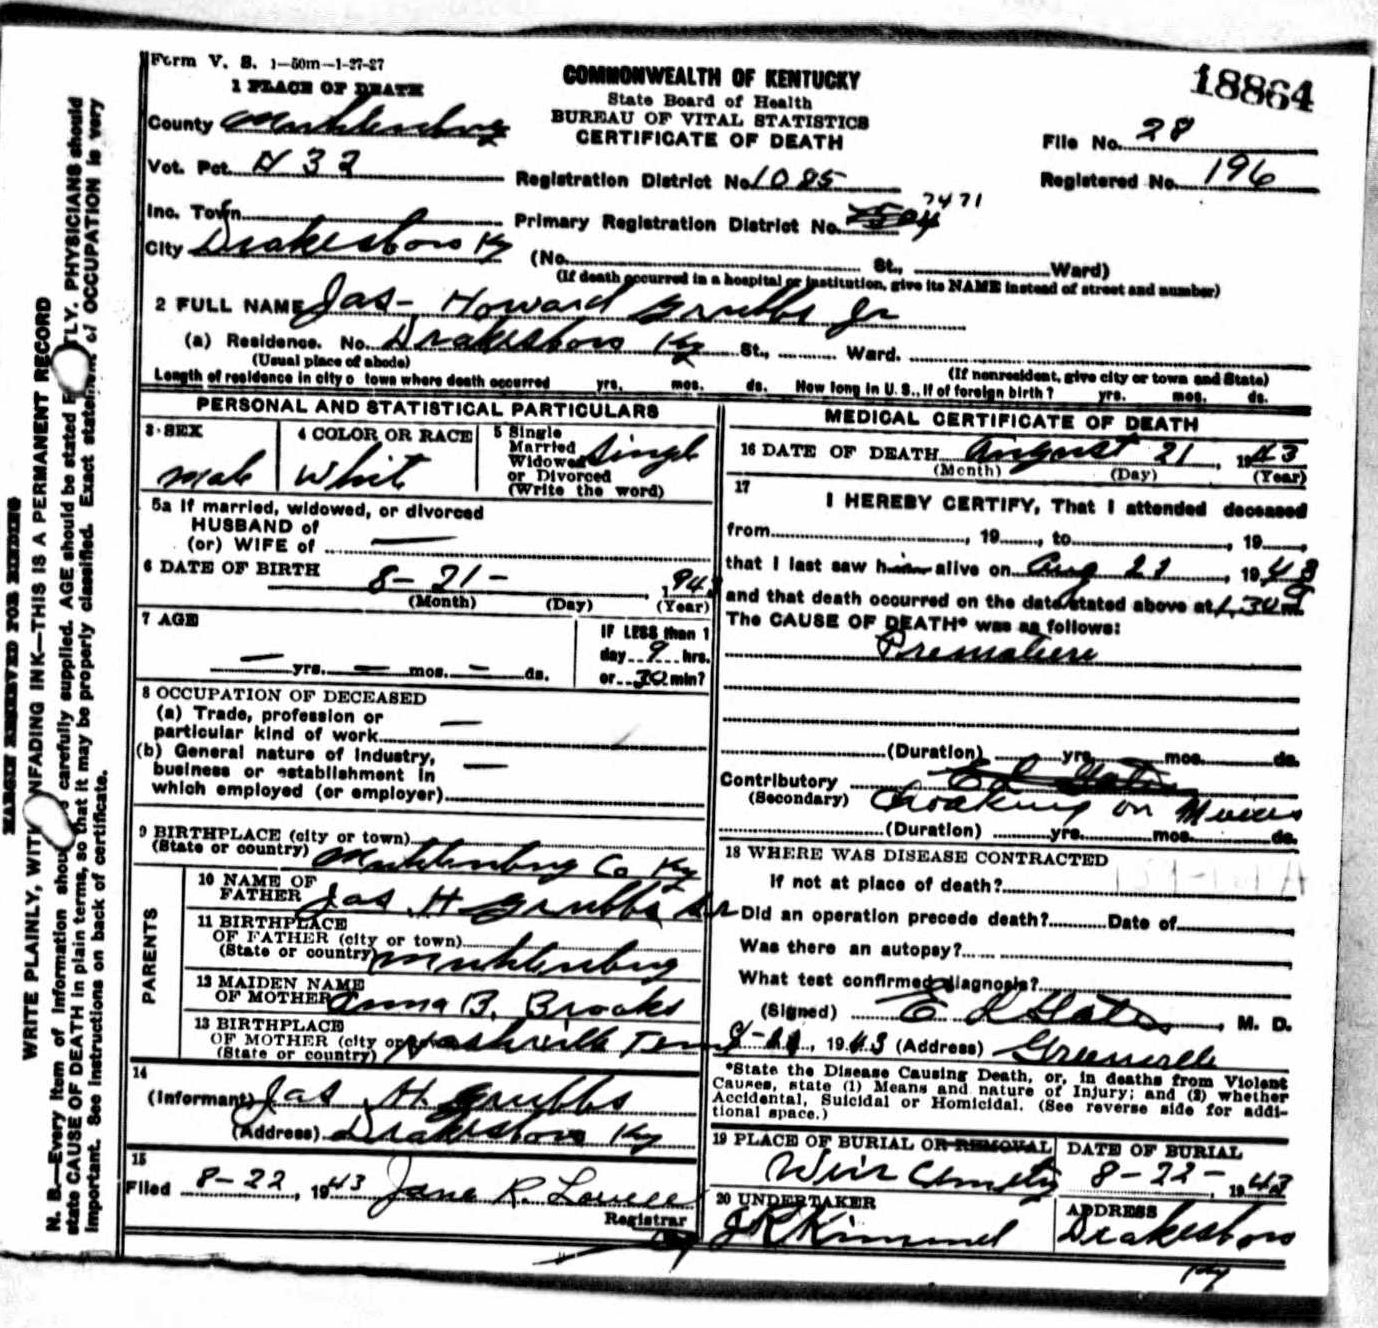 Form V. S. 1-50m-1-27-27
18864
COMMONWEALTH OF KENTUCKY
State Board of Health
BUREAU OF VITAL STATISTICS
CERTIFICATE OF DEATH
1 PLACE OF DEATH
County Muhlenburg
File No. 28
Vot. Pct. # 32
Registration District No. 1085
Registered No. 196
Inc. Town
Primary Registration District No. 7471
City Drakesboro Ky
(No. St., Ward)
(If death occurred in a hospital or institution, give its NAME instead of street and number)
2 FULL NAME Jas- Howard Grubbs Jr
(a) Residence. No. Drakesboro Ky St., Ward.
(Usual place of abode) (If nonresident, give city or town and State)
Length of residence in city o town where death occurred yrs. mos. ds. How long in U. S., if of foreign birth? yrs. mos. ds.
PERSONAL AND STATISTICAL PARTICULARS
3 SEX
male
4 COLOR OR RACE
White
5 Single
Married
Widowed
or Divorced
(Write the word)
Single
5a If married, widowed, or divorced
HUSBAND of
(or) WIFE of —
6 DATE OF BIRTH
8-21- , 1943
(Month) (Day) (Year)
7 AGE
— yrs. — mos. — ds.
IF LESS than 1
day 9 hrs.
or 30 min?
8 OCCUPATION OF DECEASED
(a) Trade, profession or
particular kind of work —
(b) General nature of industry,
business or establishment in
which employed (or employer) —
9 BIRTHPLACE (city or town)
(State or country) Muhlenburg Co Ky
PARENTS
10 NAME OF
FATHER Jas H Grubbs Sr
11 BIRTHPLACE
OF FATHER (city or town)
(State or country) Muhlenburg
12 MAIDEN NAME
OF MOTHER Anna B. Brooks
13 BIRTHPLACE
OF MOTHER (city or
(State or country) Nashville Tenn
14
(Informant) Jas H. Grubbs
(Address) Drakesboro Ky
15
Filed 8-22, 1943 Jane R. Lovell
Registrar
MEDICAL CERTIFICATE OF DEATH
16 DATE OF DEATH August 21, 1943
(Month) (Day) (Year)
17
I HEREBY CERTIFY, That I attended deceased
from , 19 , to , 19 ,
that I last saw him alive on Aug 21, 1943
and that death occurred on the date stated above at 1,30 P m.
The CAUSE OF DEATH* was as follows:
Premature
(Duration) yrs. mos. ds.
Contributory
(Secondary) Choaking on Mucus
(Duration) yrs. mos. ds.
18 WHERE WAS DISEASE CONTRACTED
If not at place of death?
Did an operation precede death? Date of
Was there an autopsy?
What test confirmed diagnosis?
(Signed) E L Gates, M. D.
, 1943 (Address) Greenville
*State the Disease Causing Death, or, in deaths from Violent
Causes, state (1) Means and nature of Injury; and (2) whether
Accidental, Suicidal or Homicidal. (See reverse side for addi-
tional space.)
19 PLACE OF BURIAL OR REMOVAL
Weir Cemetry
DATE OF BURIAL
8-22-, 1943
20 UNDERTAKER
J R Kimmel
ADDRESS
Drakesboro
Ky
MARGIN RESERVED FOR BINDING
WRITE PLAINLY, WITH UNFADING INK—THIS IS A PERMANENT RECORD
N. B.—Every item of information should be carefully supplied. AGE should be stated EXACTLY. PHYSICIANS should
state CAUSE OF DEATH in plain terms, so that it may be properly classified. Exact statement of OCCUPATION is very
important. See instructions on back of certificate.